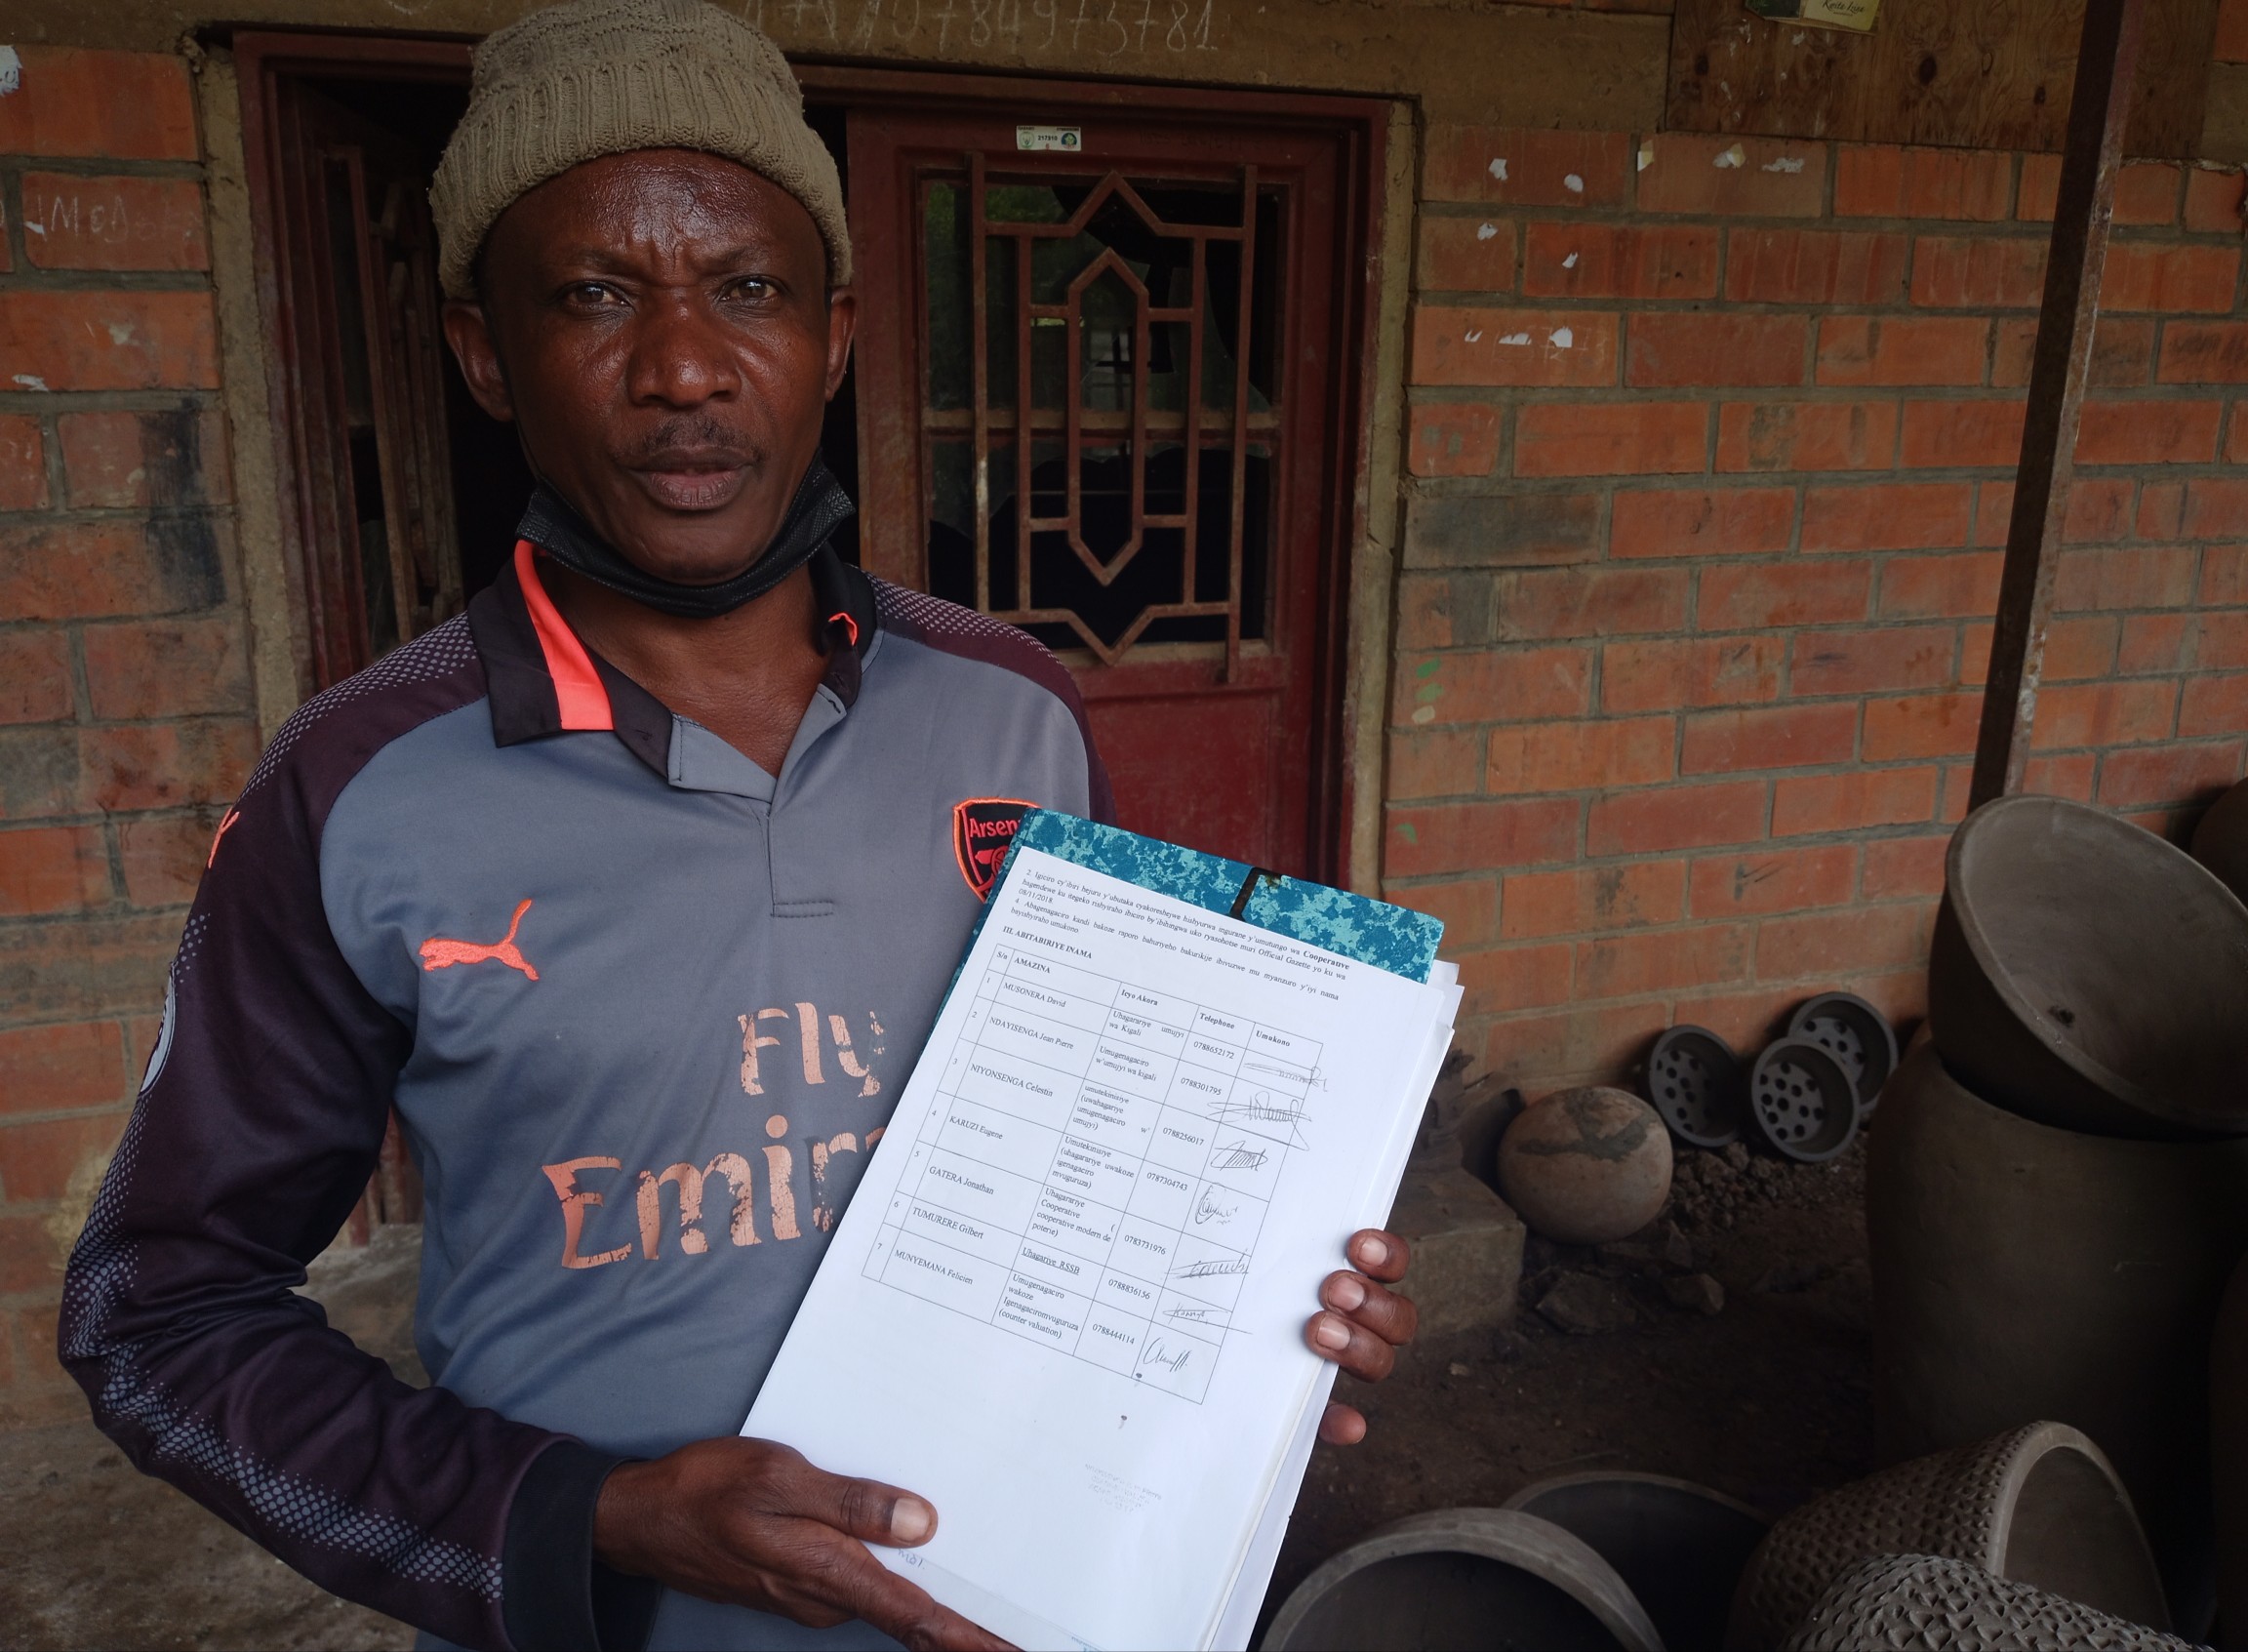 0784973781
Kwita Izina
217310
Arsen
Fly
Emir
2. Igiciro cy'ibiri hejuru y'ubutaka cyakoreshejwe hishyurwa ingurane y'umutungo wa Cooperative
hagendewe ku itegeko rishyiraho ibiciro by'ibihingwa uko ryasohotse muri Official Gazette yo ku wa
08/11/2018.
4. Abagenagaciro kandi bakoze raporo bahuriyeho bakurikije ibivuzwe mu myanzuro y'iyi nama
bayishyiraho umukono.
III. ABITABIRIYE INAMA
S/n AMAZINA Icyo Akora Telephone Umukono
1 MUSONERA David Uhagarariye umujyi wa Kigali 0788652172
2 NDAYISENGA Jean Pierre Umugenagaciro w'umujyi wa kigali 0788301795
3 NIYONSENGA Celestin umutekinisiye (uwahagariye umugenagaciro w' umujyi) 0788256017
4 KARUZI Eugene Umutekinisiye (uhagarariye uwakoze igenagaciro mvuguruza) 0787304743
5 GATERA Jonathan Uhagarariye Cooperative ( cooperative modern de poterie) 0783731976
6 TUMURERE Gilbert Uhagariye RSSB 0788836156
7 MUNYEMANA Felicien Umugenagaciro wakoze Igenagaciromvuguruza (counter valuation) 0788444114